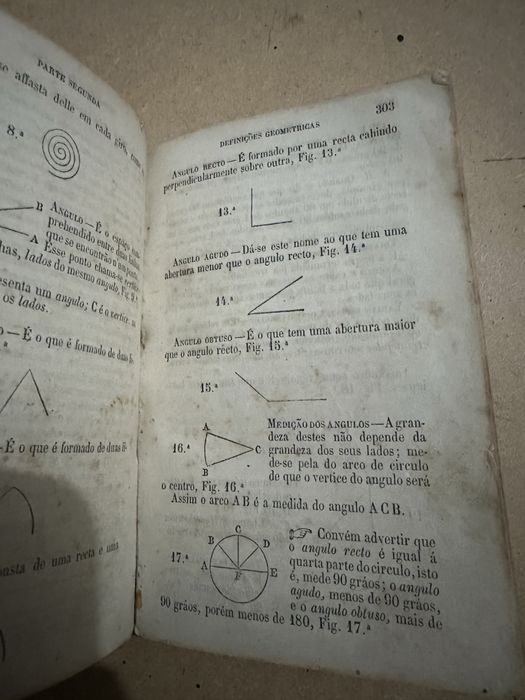 PARTE SEGUNDA
se affasta delle em cada giro,
8.ª
B
A
ANGULO — É o espaço
prehendido entre duas
que se encontrão n'um ponto
Esse ponto chama-se vertice
has, lados do mesmo angulo, Fig. 9.ª
esenta um angulo; C é o vertice
os lados.
O — É o que é formado de duas
ª
— É o que é formado de duas
onsta de uma recta e uma
303
DEFINIÇÕES GEOMETRICAS
ANGULO RECTO — É formado por uma recta cahindo
perpendicularmente sobre outra, Fig. 13.ª
13.ª
ANGULO AGUDO — Dá-se este nome ao que tem uma
abertura menor que o angulo recto, Fig. 14.ª
14.ª
ANGULO OBTUSO — É o que tem uma abertura maior
que o angulo recto, Fig. 15.ª
15.ª
A
16.ª
C
B
MEDIÇÃO DOS ANGULOS — A gran-
deza destes não depende da
grandeza dos seus lados; me-
de-se pela do arco de circulo
de que o vertice do angulo será
o centro, Fig. 16.ª
Assim o arco A B é a medida do angulo A C B.
C
B
D
17.ª
A
E
F
☞ Convém advertir que
o angulo recto é igual á
quarta parte do circulo, isto
é, mede 90 gráos; o angulo
agudo, menos de 90 gráos,
e o angulo obtuso, mais de
90 gráos, porém menos de 180, Fig. 17.ª